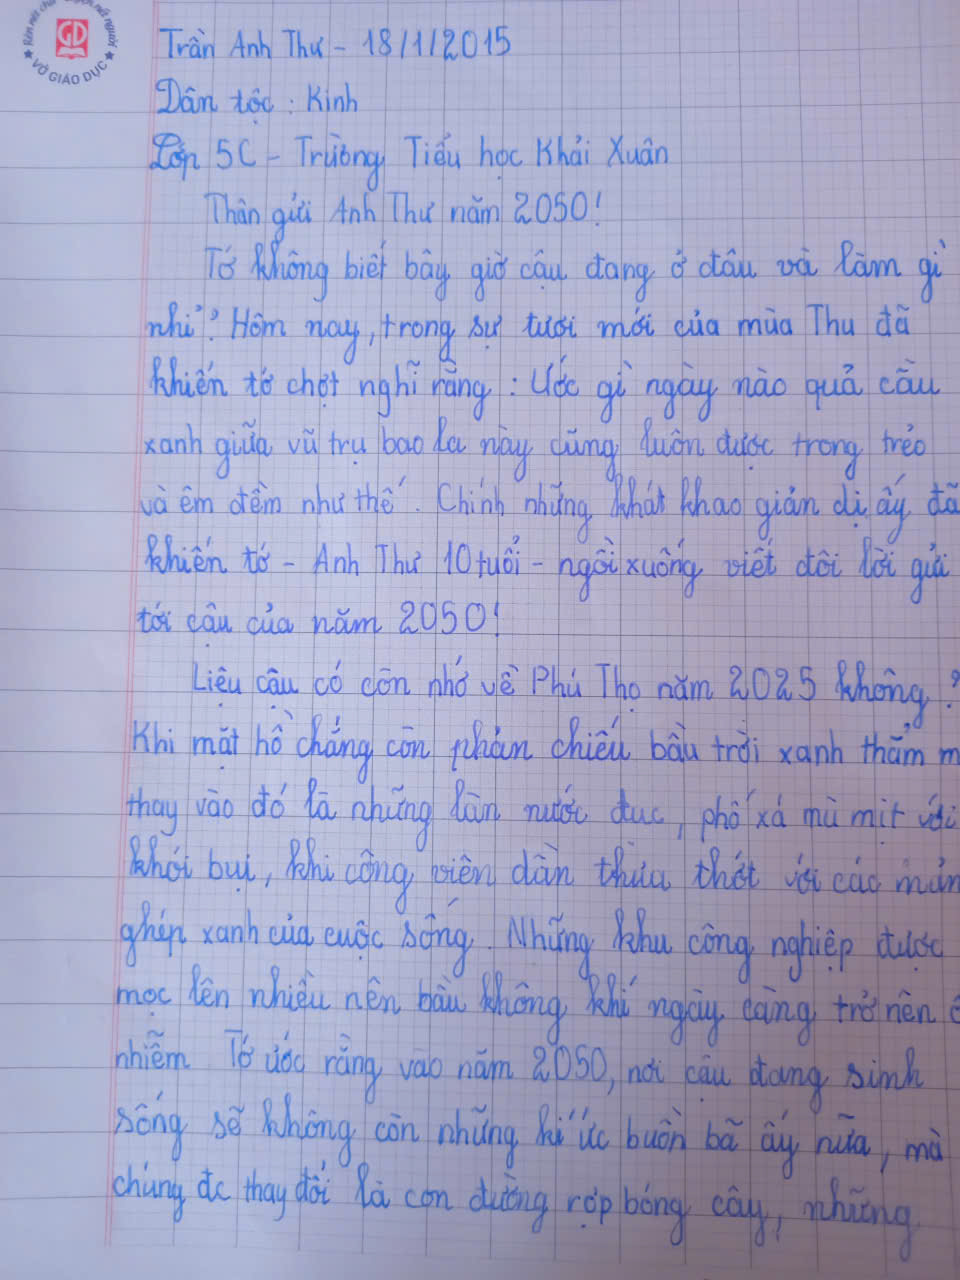 GD
VỞ GIÁO DỤC
Trần Anh Thư - 18/1/2015
Dân tộc: Kinh
Lớp 5C - Trường Tiểu học Khải Xuân
Thân gửi Anh Thư năm 2050!
Tớ không biết bây giờ cậu đang ở đâu và làm gì
nhỉ? Hôm nay, trong sự tươi mới của mùa Thu đã
khiến tớ chợt nghĩ rằng: Ước gì ngày nào quả cầu
xanh giữa vũ trụ bao la này cũng luôn được trong trẻo
và êm đềm như thế. Chính những khát khao giản dị ấy đã
khiến tớ - Anh Thư 10 tuổi - ngồi xuống viết đôi lời gửi
tới cậu của năm 2050!
Liệu cậu có còn nhớ về Phú Thọ năm 2025 không?
Khi mặt hồ chẳng còn phản chiếu bầu trời xanh thẳm m
thay vào đó là những làn nước đục, phố xá mù mịt với
khói bụi, khi công viên dần thưa thớt với các mản
ghép xanh của cuộc sống. Những khu công nghiệp được
mọc lên nhiều nên bầu không khí ngày càng trở nên ô
nhiễm. Tớ ước rằng vào năm 2050, nơi cậu đang sinh
sống sẽ không còn những kí ức buồn bã ấy nữa, mà
chúng đc thay đổi là con đường rợp bóng cây, những